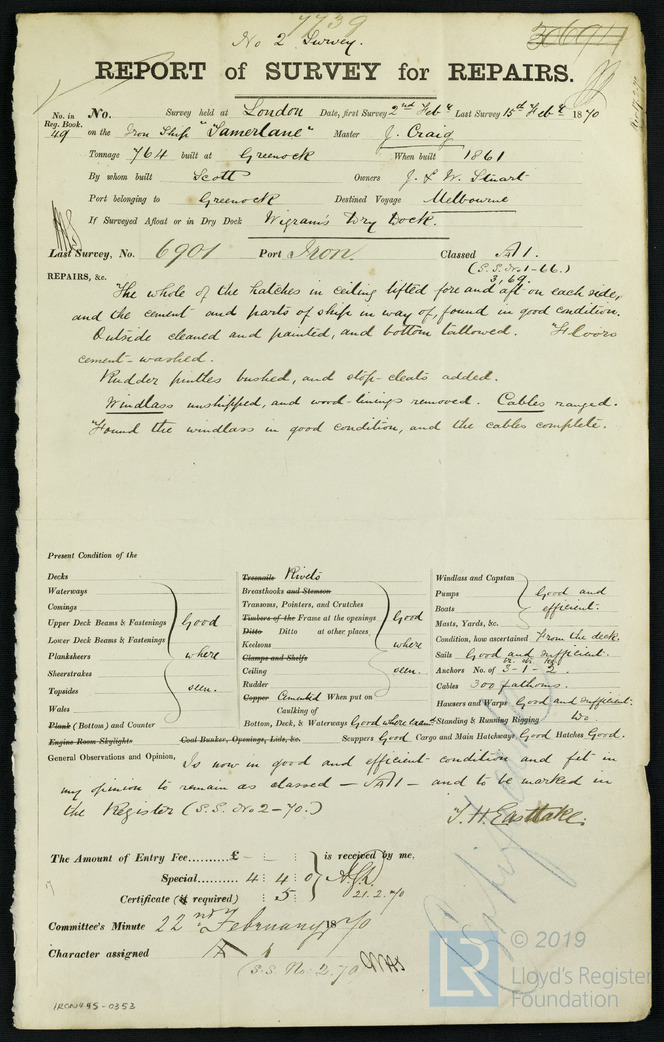 7739
No 2 Survey.
30691
REPORT of SURVEY for REPAIRS.
No. in Reg. Book. 49
No. Survey held at London Date, first Survey 2nd Feby Last Survey 15th Feby 1870
on the Iron Ship "Tamerlane" Master J. Craig
Tonnage 764 built at Greenock When built 1861
By whom built Scott Owners J. & W. Stuart
Port belonging to Greenock Destined Voyage Melbourne
If Surveyed Afloat or in Dry Dock Wigram's Dry Dock.
Last Survey, No. 6901 Port Iron. Classed A1.
(S.S. No. 1-66.)
3,69.
REPAIRS, &c.
The whole of the hatches in ceiling lifted fore and aft on each side,
and the cement and parts of ship in way of, found in good condition.
Outside cleaned and painted, and bottom tallowed. Floors
cement-washed.
Rudder pintles bushed, and stop-cleats added.
Windlass unshipped, and wood-linings removed. Cables ranged.
Found the windlass in good condition, and the cables complete.
Present Condition of the
Decks
Waterways
Comings
Upper Deck Beams & Fastenings
Lower Deck Beams & Fastenings
Planksheers
Sheerstrakes
Topsides
Wales
Good
where
seen.
Plank (Bottom) and Counter
Engine Room Skylights
Coal Bunker, Openings, Lids, &c.
Treenails Rivets
Breasthooks and Stemson
Transoms, Pointers, and Crutches
Timbers of the Frame at the openings
Ditto Ditto at other places
Keelsons
Clamps and Shelfs
Ceiling
Rudder
Good
where
seen.
Copper Cemented When put on
Caulking of
Bottom, Deck, & Waterways Good where
Scuppers Good Cargo and Main Hatchways Good Hatches Good.
Windlass and Capstan
Pumps
Boats
Masts, Yards, &c.
Good and
efficient.
Condition, how ascertained From the deck.
Sails Good and sufficient.
Anchors No. of 3-1-2.
Cables 300 fathoms.
Hawsers and Warps Good and sufficient.
Standing & Running Rigging Do.
General Observations and Opinion, Is now in good and efficient condition and fit in
my opinion to remain as classed - A1 - and to be marked in
the Register (S.S. No 2-70.)
T. H. Eastlake.
The Amount of Entry Fee......... £ - : - : is received by me,
Special......... 4 : 4 : 0
Certificate (if required) : 5 :
21.2.70
Committee's Minute 22nd February 1870
Character assigned A 1
(S.S. No. 2.70
IRON445-0353
LR
© 2019
Lloyd's Register
Foundation